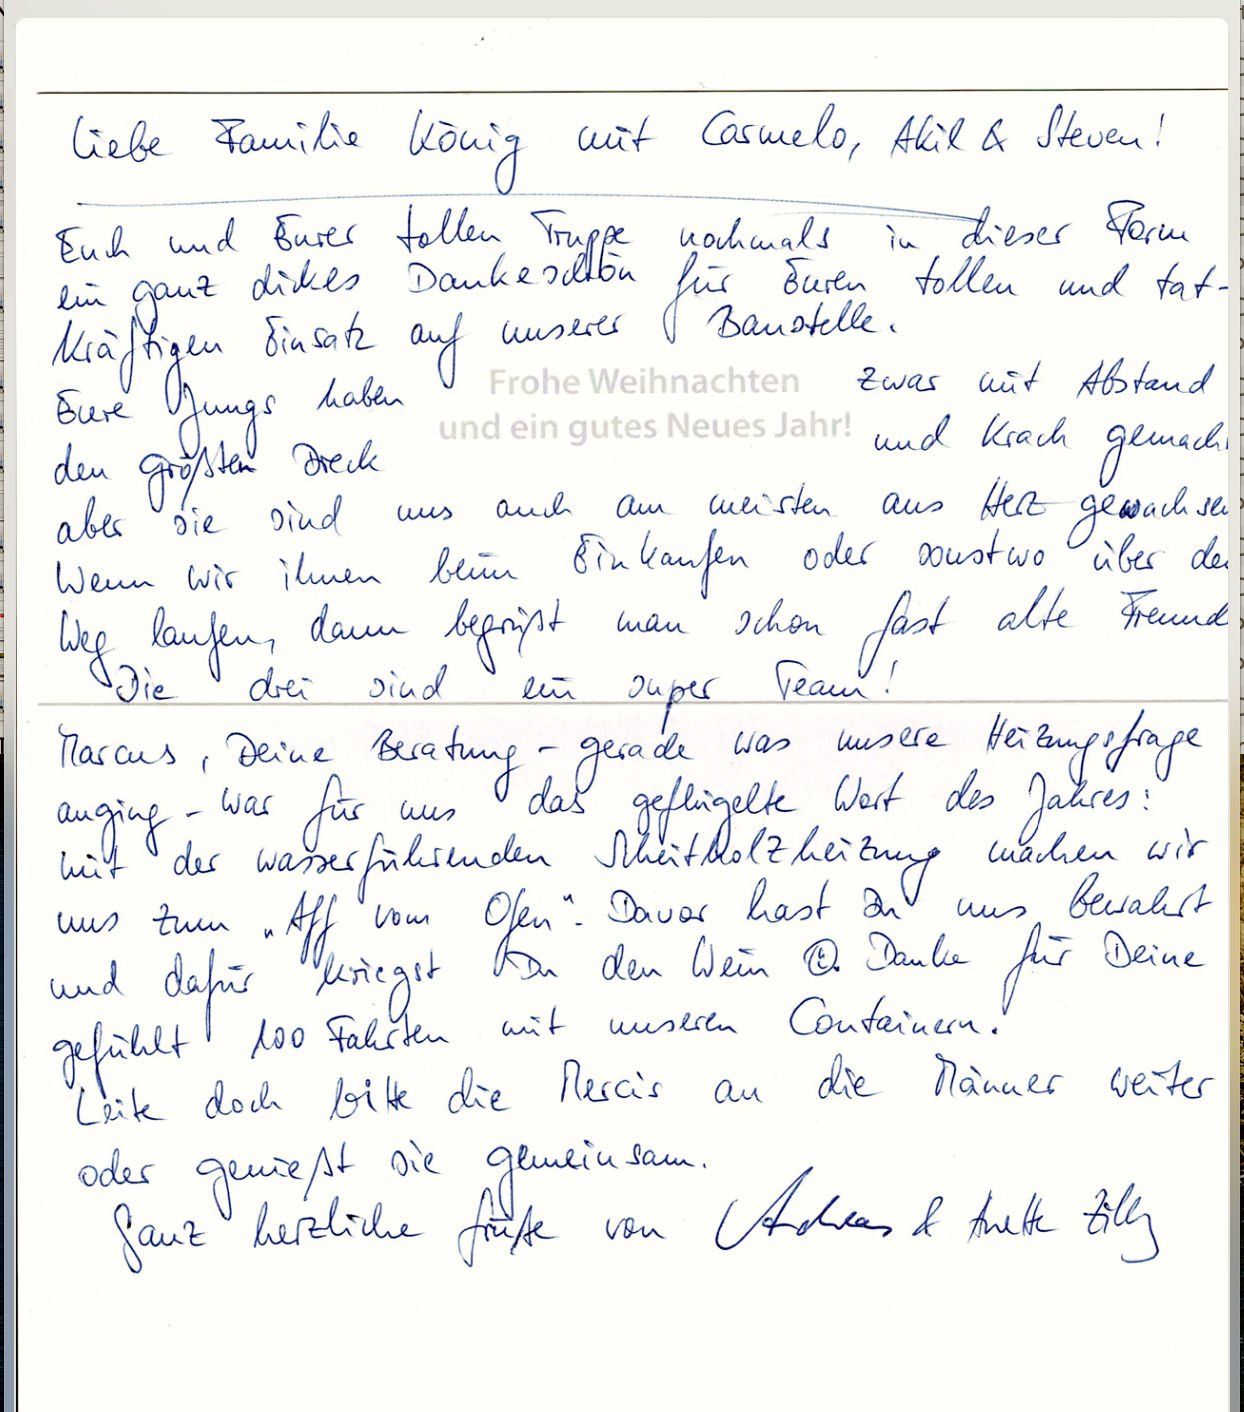 Liebe Familie König mit Carmelo, Akil & Steven!
Euch und Eurer tollen Truppe nochmals in dieser Form
ein ganz dickes Dankeschön für Euren tollen und tat-
kräftigen Einsatz auf unserer Baustelle.
Frohe Weihnachten
und ein gutes Neues Jahr!
Eure Jungs haben zwar mit Abstand
den größten Dreck und Krach gemacht
aber sie sind uns auch am meisten ans Herz gewachsen
Wenn wir ihnen beim Einkaufen oder sonstwo über den
Weg laufen, dann begrüßt man schon fast alte Freund
Die drei sind ein super Team!
Marcus, Deine Beratung - gerade was unsere Heizungsfrage
anging - war für uns das geflügelte Wort des Jahres:
mit der wasserführenden Scheitholzheizung machen wir
uns zum „Aff vom Ofen“. Davor hast Du uns bewahrt
und dafür kriegst Du den Wein ☺. Danke für Deine
gefühlt 100 Fahrten mit unseren Containern.
Leite doch bitte die Mercis an die Männer weiter
oder genießt sie gemeinsam.
Ganz herzliche Grüße von Andreas & Anette Zilly